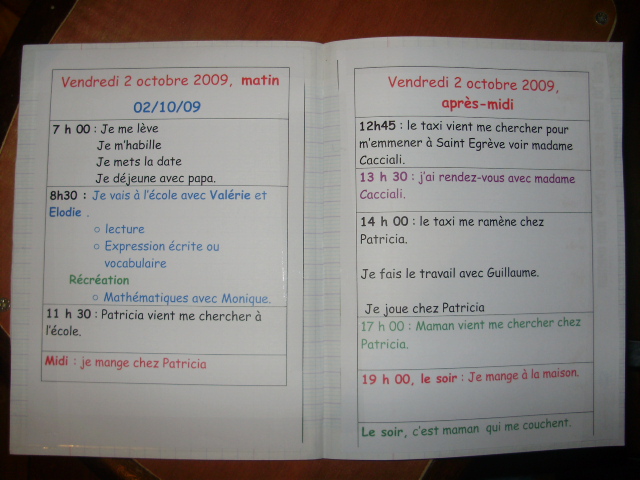 Vendredi 2 octobre 2009, matin
02/10/09
7 h 00 : Je me lève
Je m'habille
Je mets la date
Je déjeune avec papa.
8h30 : Je vais à l'école avec Valérie et
Elodie .
○ lecture
○ Expression écrite ou
vocabulaire
Récréation
○ Mathématiques avec Monique.
11 h 30 : Patricia vient me chercher à
l'école.
Midi : je mange chez Patricia
Vendredi 2 octobre 2009,
après-midi
12h45 : le taxi vient me chercher pour
m'emmener à Saint Egrève voir madame
Cacciali.
13 h 30 : j'ai rendez-vous avec madame
Cacciali.
14 h 00 : le taxi me ramène chez
Patricia.
Je fais le travail avec Guillaume.
Je joue chez Patricia
17 h 00 : Maman vient me chercher chez
Patricia.
19 h 00, le soir : Je mange à la maison.
Le soir, c'est maman qui me couchent.